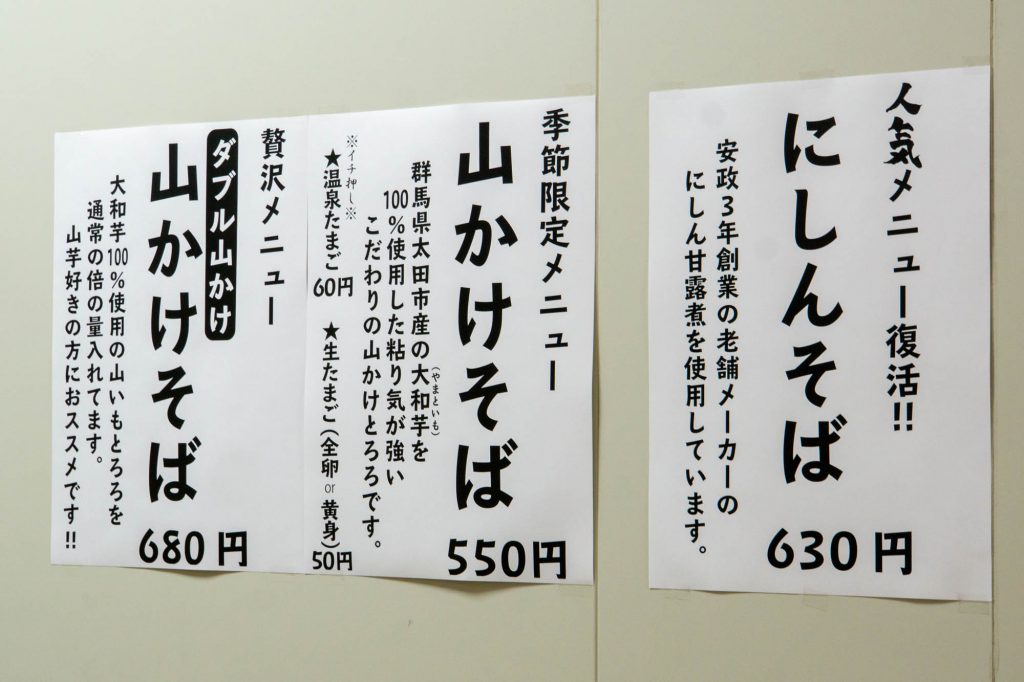 人気メニュー復活!!
にしんそば
630円
安政3年創業の老舗メーカーの
にしん甘露煮を使用しています。
季節限定メニュー
山かけそば
550円
群馬県太田市産の大和芋を
(やまといも)
100%使用した粘り気が強い
こだわりの山かけとろろです。
※イチ押し※
★温泉たまご 60円
★生たまご(全卵or黄身) 50円
贅沢メニュー
ダブル山かけ
山かけそば
680円
大和芋100%使用の山いもとろろを
通常の倍の量入れてます。
山芋好きの方におススメです!!